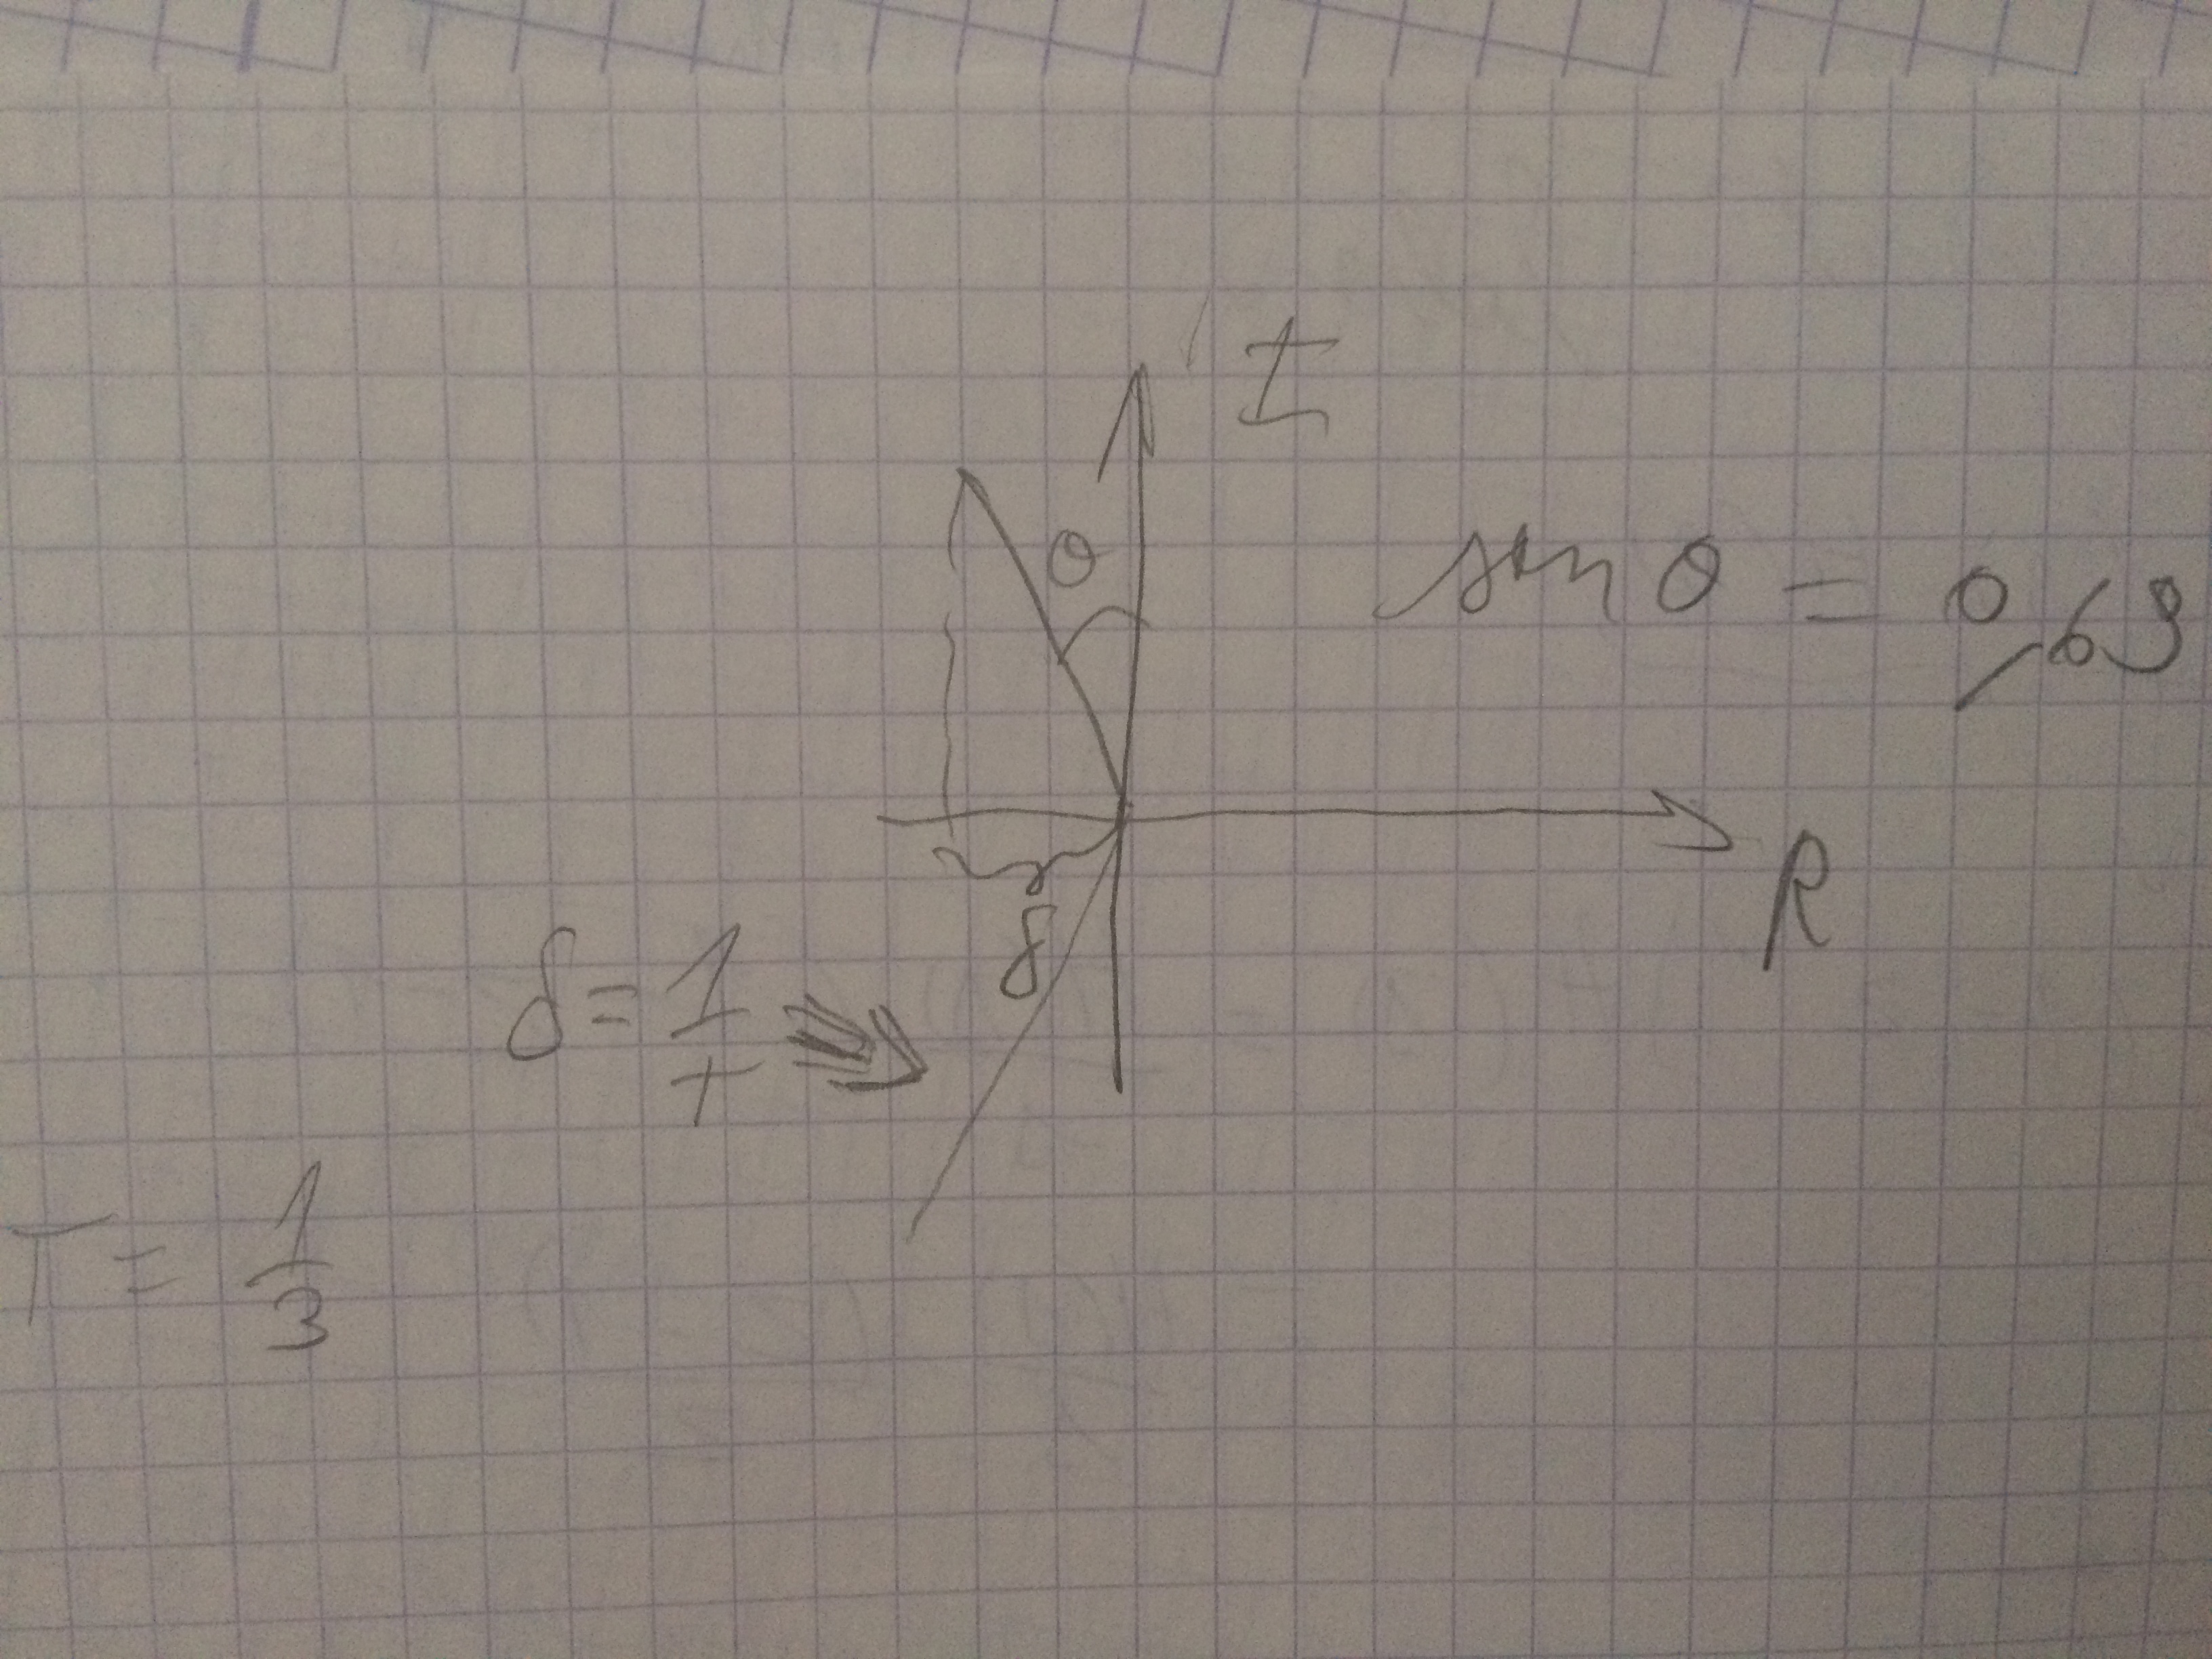 I
θ
sin θ = 0,69
R
δ
δ = 1/T
T = 1/3